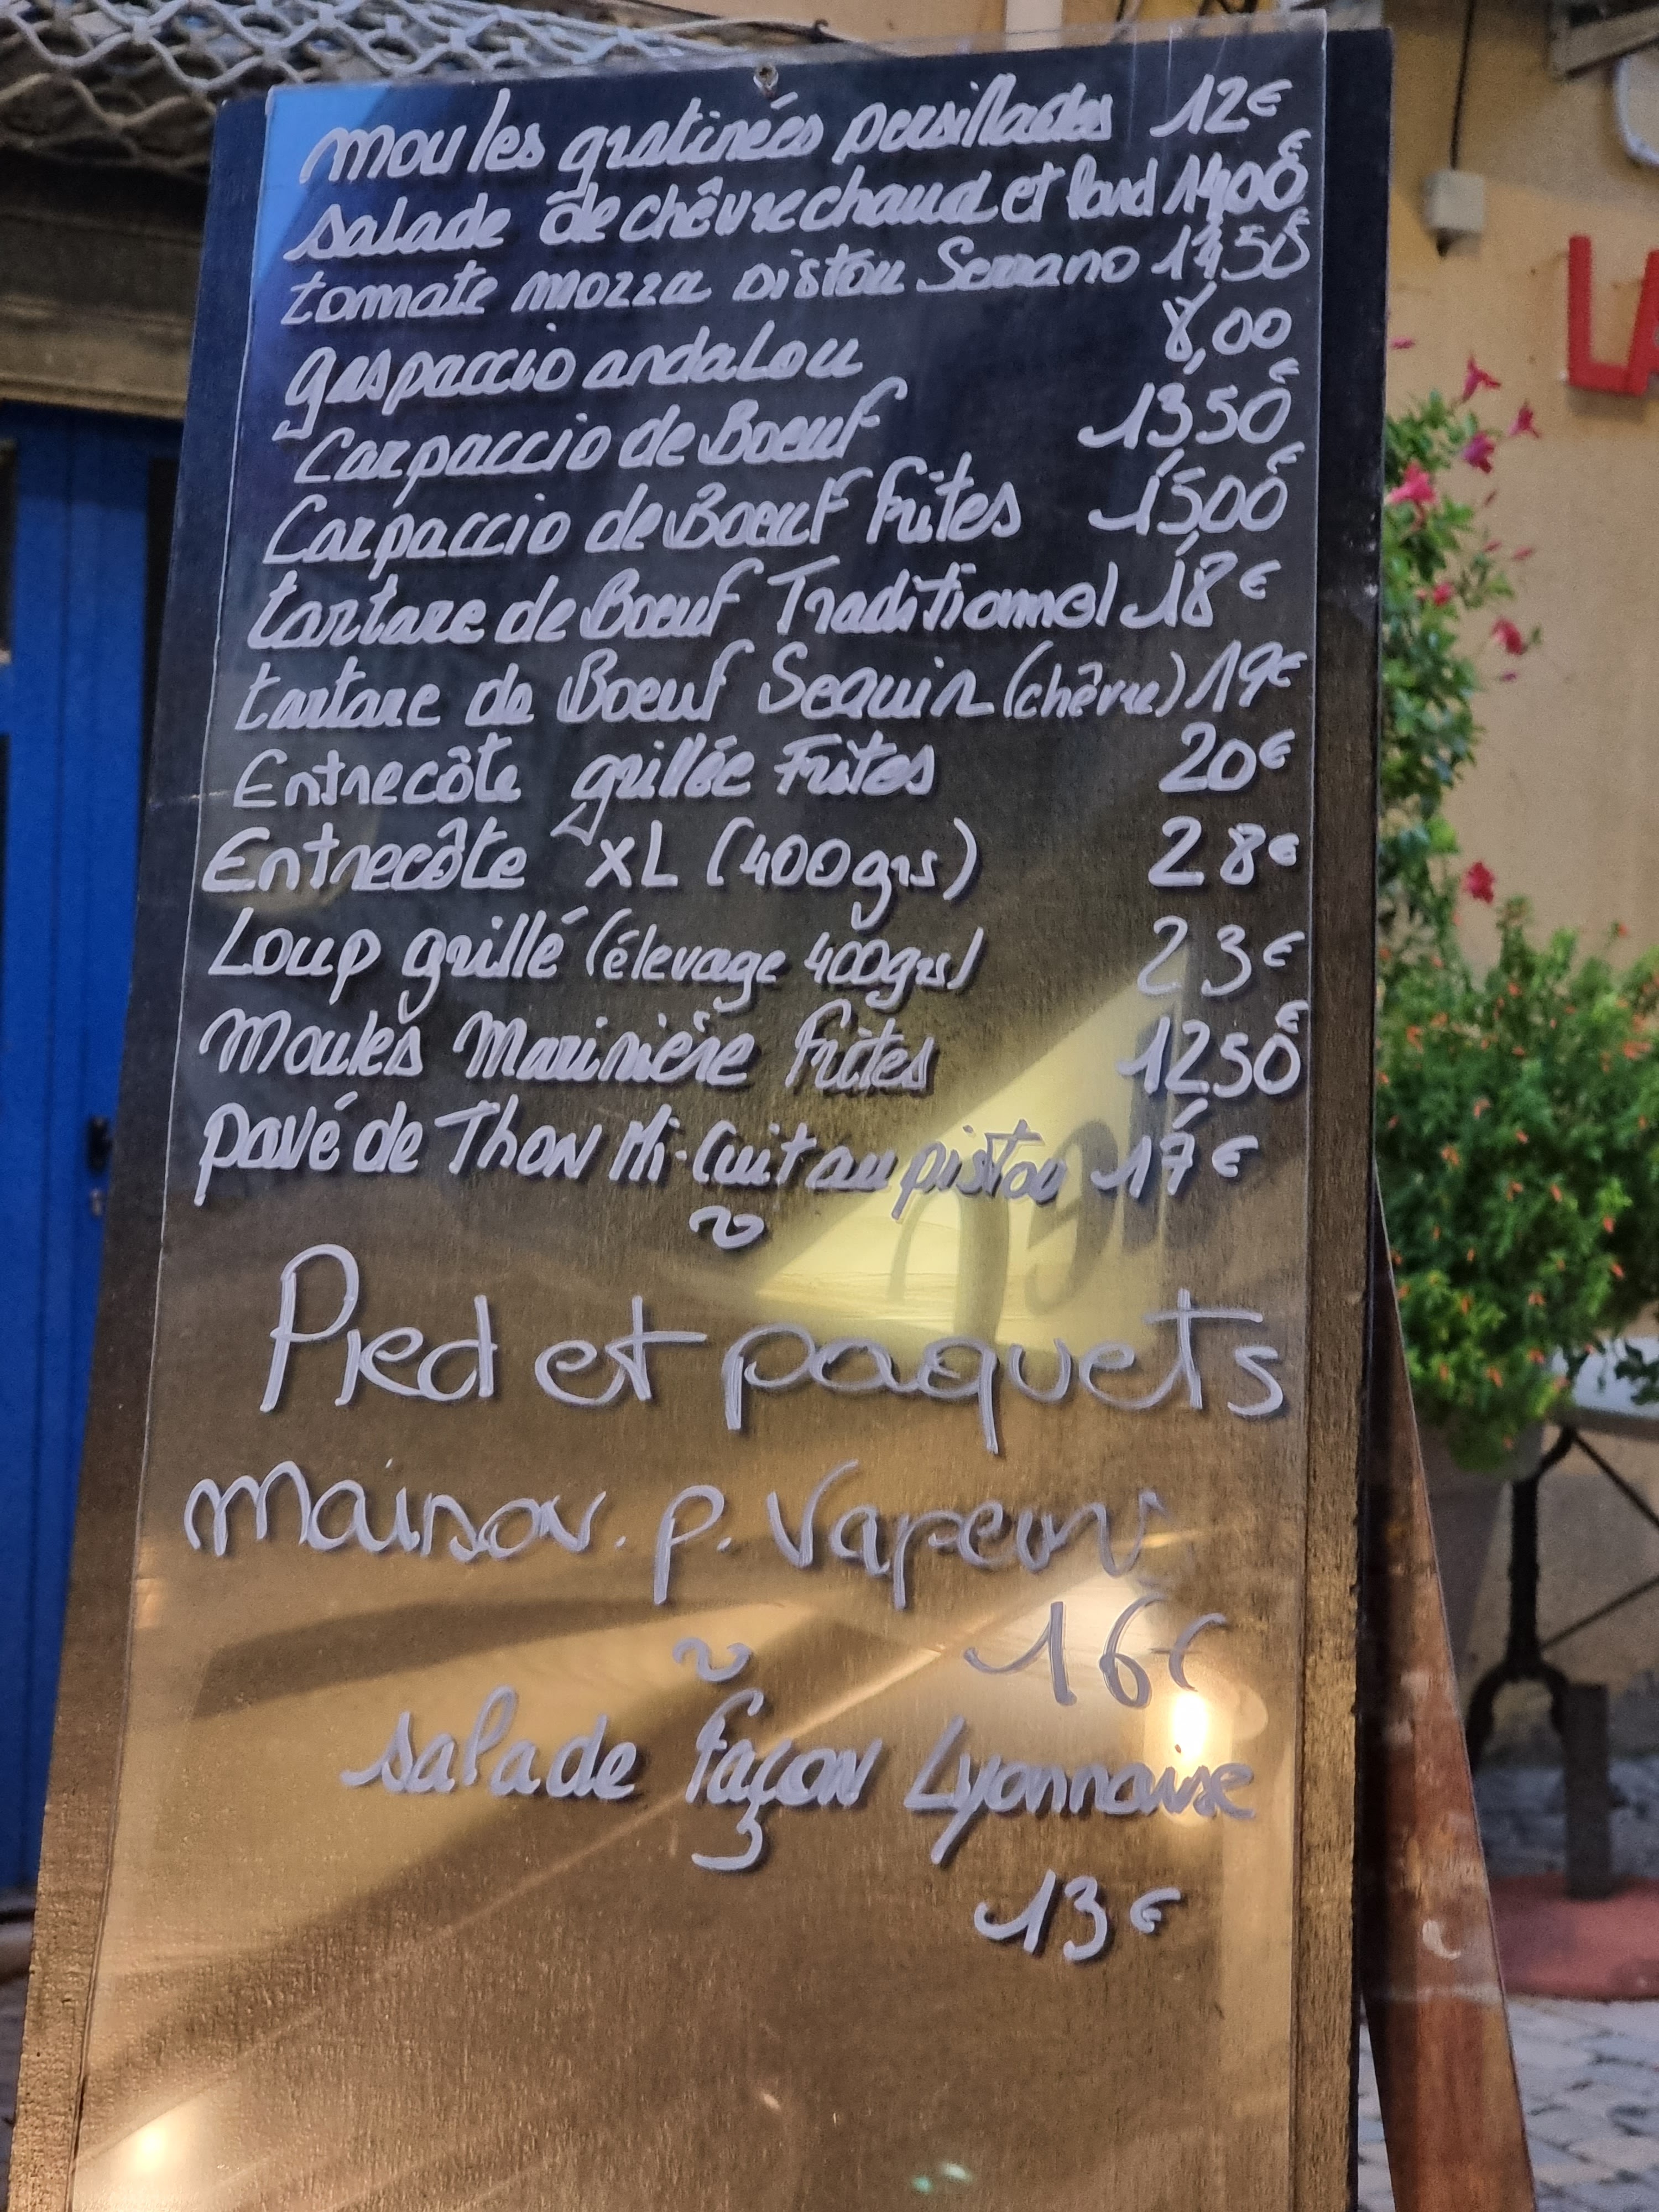 moules gratinées persillades 12€
salade de chêvre chaud et lard 14,00€
tomate mozza pistou Serrano 14,50€
gaspaccio andalou 8,00
Carpaccio de Boeuf 13,50€
Carpaccio de Boeuf frites 15,00€
tartare de Boeuf Traditionnel 18€
tartare de Boeuf Seguin (chêvre) 19€
Entrecôte grillée Frites 20€
Entrecôte XL (400grs) 28€
Loup grillé (élevage 400grs) 23€
Moules Marinière frites 12,50€
pavé de Thon Mi-Cuit au pistou 17€
Pied et paquets
maison. p. Vapeur
16€
salade façon Lyonnaise
13€
LA